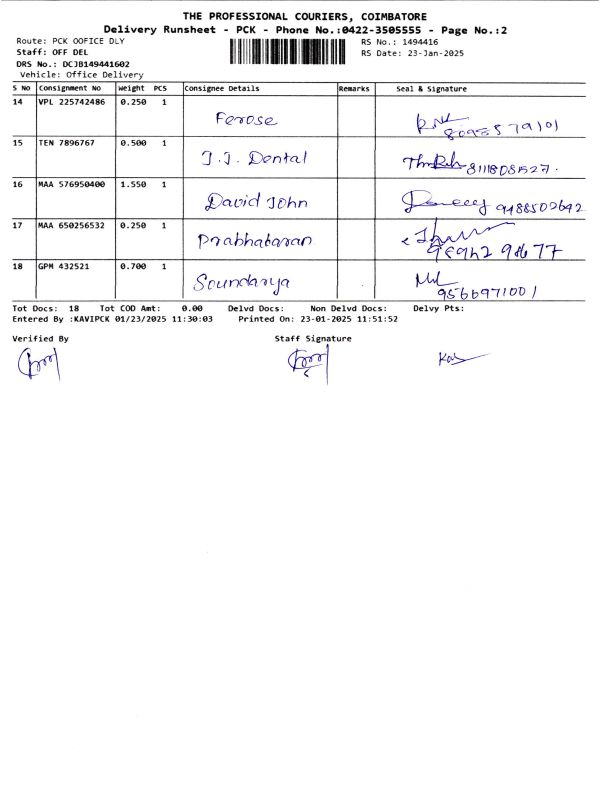 THE PROFESSIONAL COURIERS, COIMBATORE
Delivery Runsheet - PCK - Phone No.:0422-3505555 - Page No.:2
Route: PCK OOFICE DLY RS No.: 1494416
Staff: OFF DEL RS Date: 23-Jan-2025
DRS No.: DCJB149441602
Vehicle: Office Delivery
S No Consignment No Weight PCS Consignee Details Remarks Seal & Signature
14 VPL 225742486 0.250 1 Ferose
15 TEN 7896767 0.500 1 J.J. Dental
16 MAA 576950400 1.550 1 David John 9488502642
17 MAA 650256532 0.250 1 Prabhakaran
18 GPM 432521 0.700 1 Soundarya 9566971001
Tot Docs: 18 Tot COD Amt: 0.00 Delvd Docs: Non Delvd Docs: Delvy Pts:
Entered By :KAVIPCK 01/23/2025 11:30:03 Printed On: 23-01-2025 11:51:52
Verified By Staff Signature